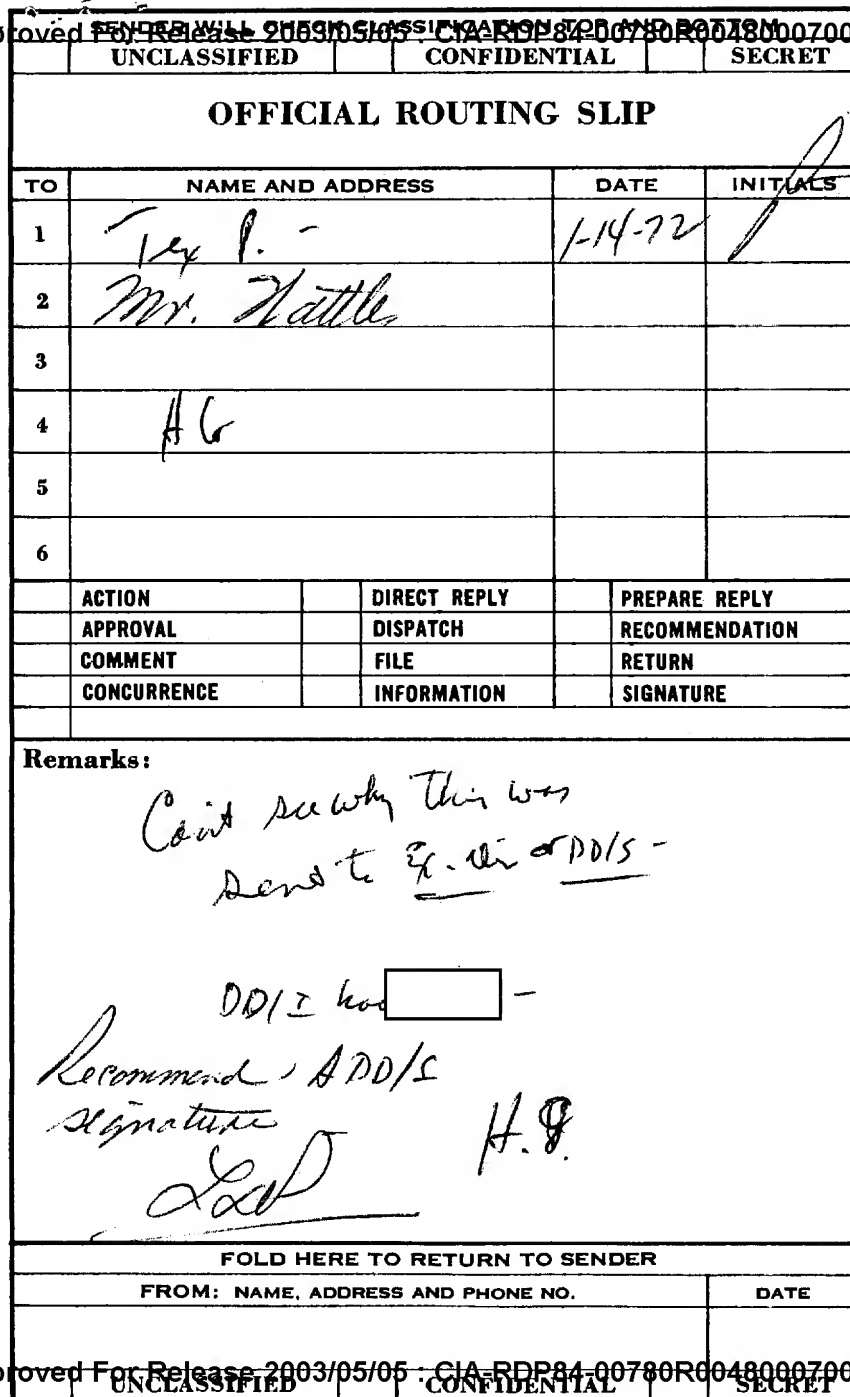 SENDER WILL CHECK CLASSIFICATION TOP AND BOTTOM
proved For Release 2003/05/05 : CIA-RDP84-00780R0048000700
UNCLASSIFIED CONFIDENTIAL SECRET
OFFICIAL ROUTING SLIP
TO NAME AND ADDRESS DATE INITIALS
1 Tex P. - 1-14-72
2 Mr. Wattles
3
4 HG
5
6
ACTION DIRECT REPLY PREPARE REPLY
APPROVAL DISPATCH RECOMMENDATION
COMMENT FILE RETURN
CONCURRENCE INFORMATION SIGNATURE
Remarks:
Can't see why this was
send to Ex. Dir or DD/S -
DD/I has -
Recommend ADD/S
signature
H.G.
FOLD HERE TO RETURN TO SENDER
FROM: NAME, ADDRESS AND PHONE NO. DATE
proved For Release 2003/05/05 : CIA-RDP84-00780R0048000700
UNCLASSIFIED CONFIDENTIAL SECRET